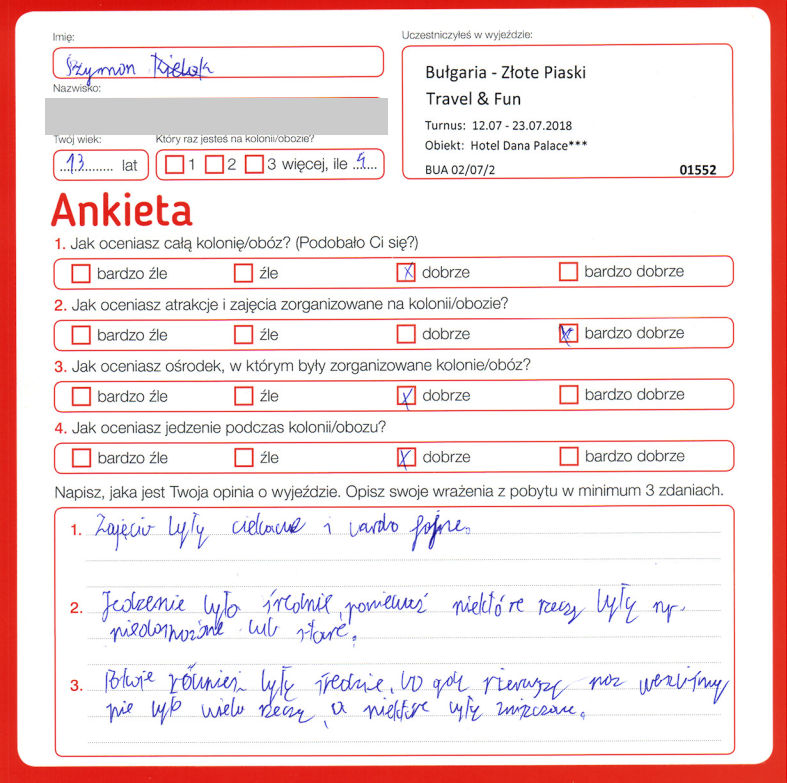 Imię:
Szymon
Nazwisko:
Uczestniczyłeś w wyjeździe:
Bułgaria - Złote Piaski
Travel & Fun
Turnus: 12.07 - 23.07.2018
Obiekt: Hotel Dana Palace***
BUA 02/07/2 01552
Twój wiek:
13 lat
Który raz jesteś na kolonii/obozie?
1 2 3 więcej, ile
Ankieta
1. Jak oceniasz całą kolonię/obóz? (Podobało Ci się?)
bardzo źle źle dobrze bardzo dobrze
2. Jak oceniasz atrakcje i zajęcia zorganizowane na kolonii/obozie?
bardzo źle źle dobrze bardzo dobrze
3. Jak oceniasz ośrodek, w którym były zorganizowane kolonie/obóz?
bardzo źle źle dobrze bardzo dobrze
4. Jak oceniasz jedzenie podczas kolonii/obozu?
bardzo źle źle dobrze bardzo dobrze
Napisz, jaka jest Twoja opinia o wyjeździe. Opisz swoje wrażenia z pobytu w minimum 3 zdaniach.
1. Zajęcia były ciekawe i bardzo fajne.
2. Jedzenie było średnie, ponieważ niektóre rzeczy były np.
niedosmażone lub stare.
3. Pokoje również były średnie, bo gdy pierwszy raz weszliśmy
nie było wielu rzeczy, a niektóre były zniszczone.